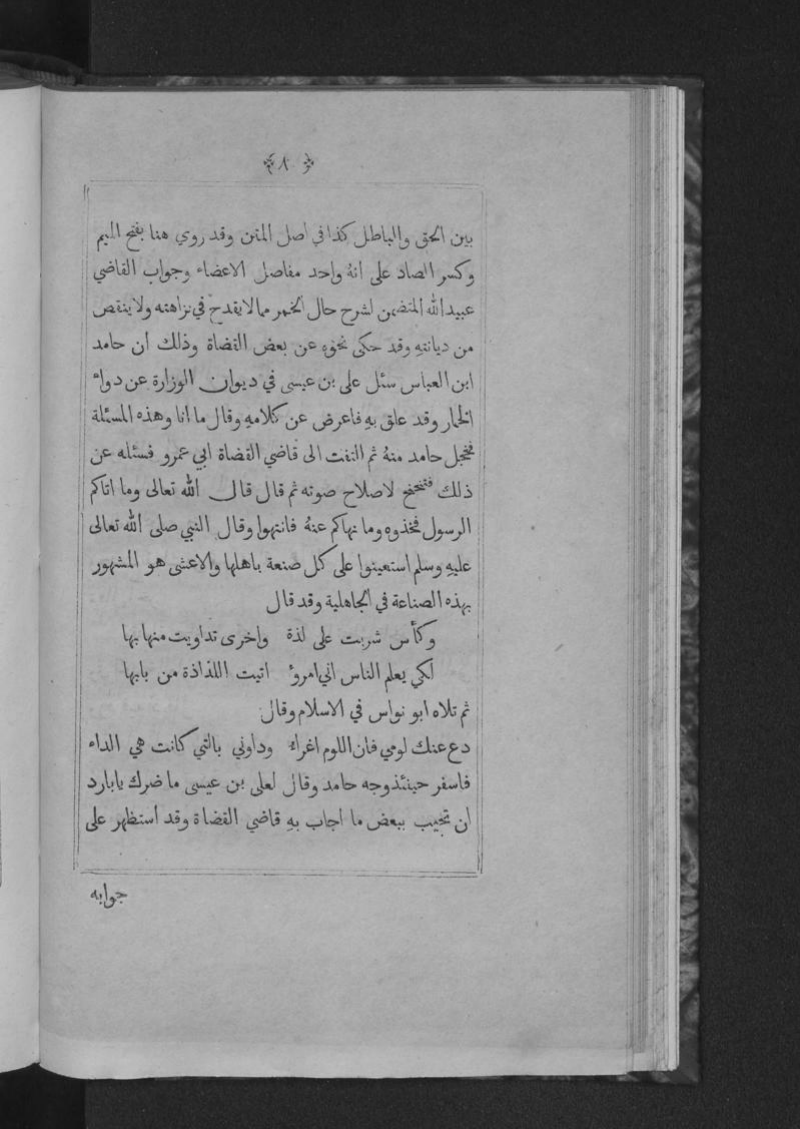 ﴿ ٨ ﴾
بين الحق والباطل كذا في اصل المتن وقد روي هنا بفتح الميم
وكسر الصاد على انهُ واحد مفاصل الاعضاء وجواب القاضي
عبيدالله المتضمن لشرح حال الخمر مما لا يقدح في نزاهته ولا ينقص
من ديانتهِ وقد حكى نحوه عن بعض القضاة وذلك ان حامد
ابن العباس سئل علي بن عيسى في ديوان الوزارة عن دواء
الخمار وقد علق بهِ فاعرض عن كلامهِ وقال ما انا وهذه المسئلة
فخجل حامد منهُ ثم التفت الى قاضي القضاة ابي عمرو فسئله عن
ذلك فتنحنح لاصلاح صوته ثم قال قال الله تعالى وما اتاكم
الرسول فخذوه وما نهاكم عنهُ فانتهوا وقال النبي صلى الله تعالى
عليهِ وسلم استعينوا على كل صنعة باهلها والاعشى هو المشهور
بهذه الصناعة في الجاهلية وقد قال
وكأس شربت على لذة واخرى تداويت منها بها
لكي يعلم الناس اني امروٴ اتيت اللذاذة من بابها
ثم تلاه ابو نواس في الاسلام وقال
دع عنك لومي فان اللوم اغراء وداوني بالتي كانت هي الداء
فاسفر حينئذ وجه حامد وقال لعلي بن عيسى ما ضرك يا بارد
ان تجيب ببعض ما اجاب بهِ قاضي القضاة وقد استظهر على
جوابه